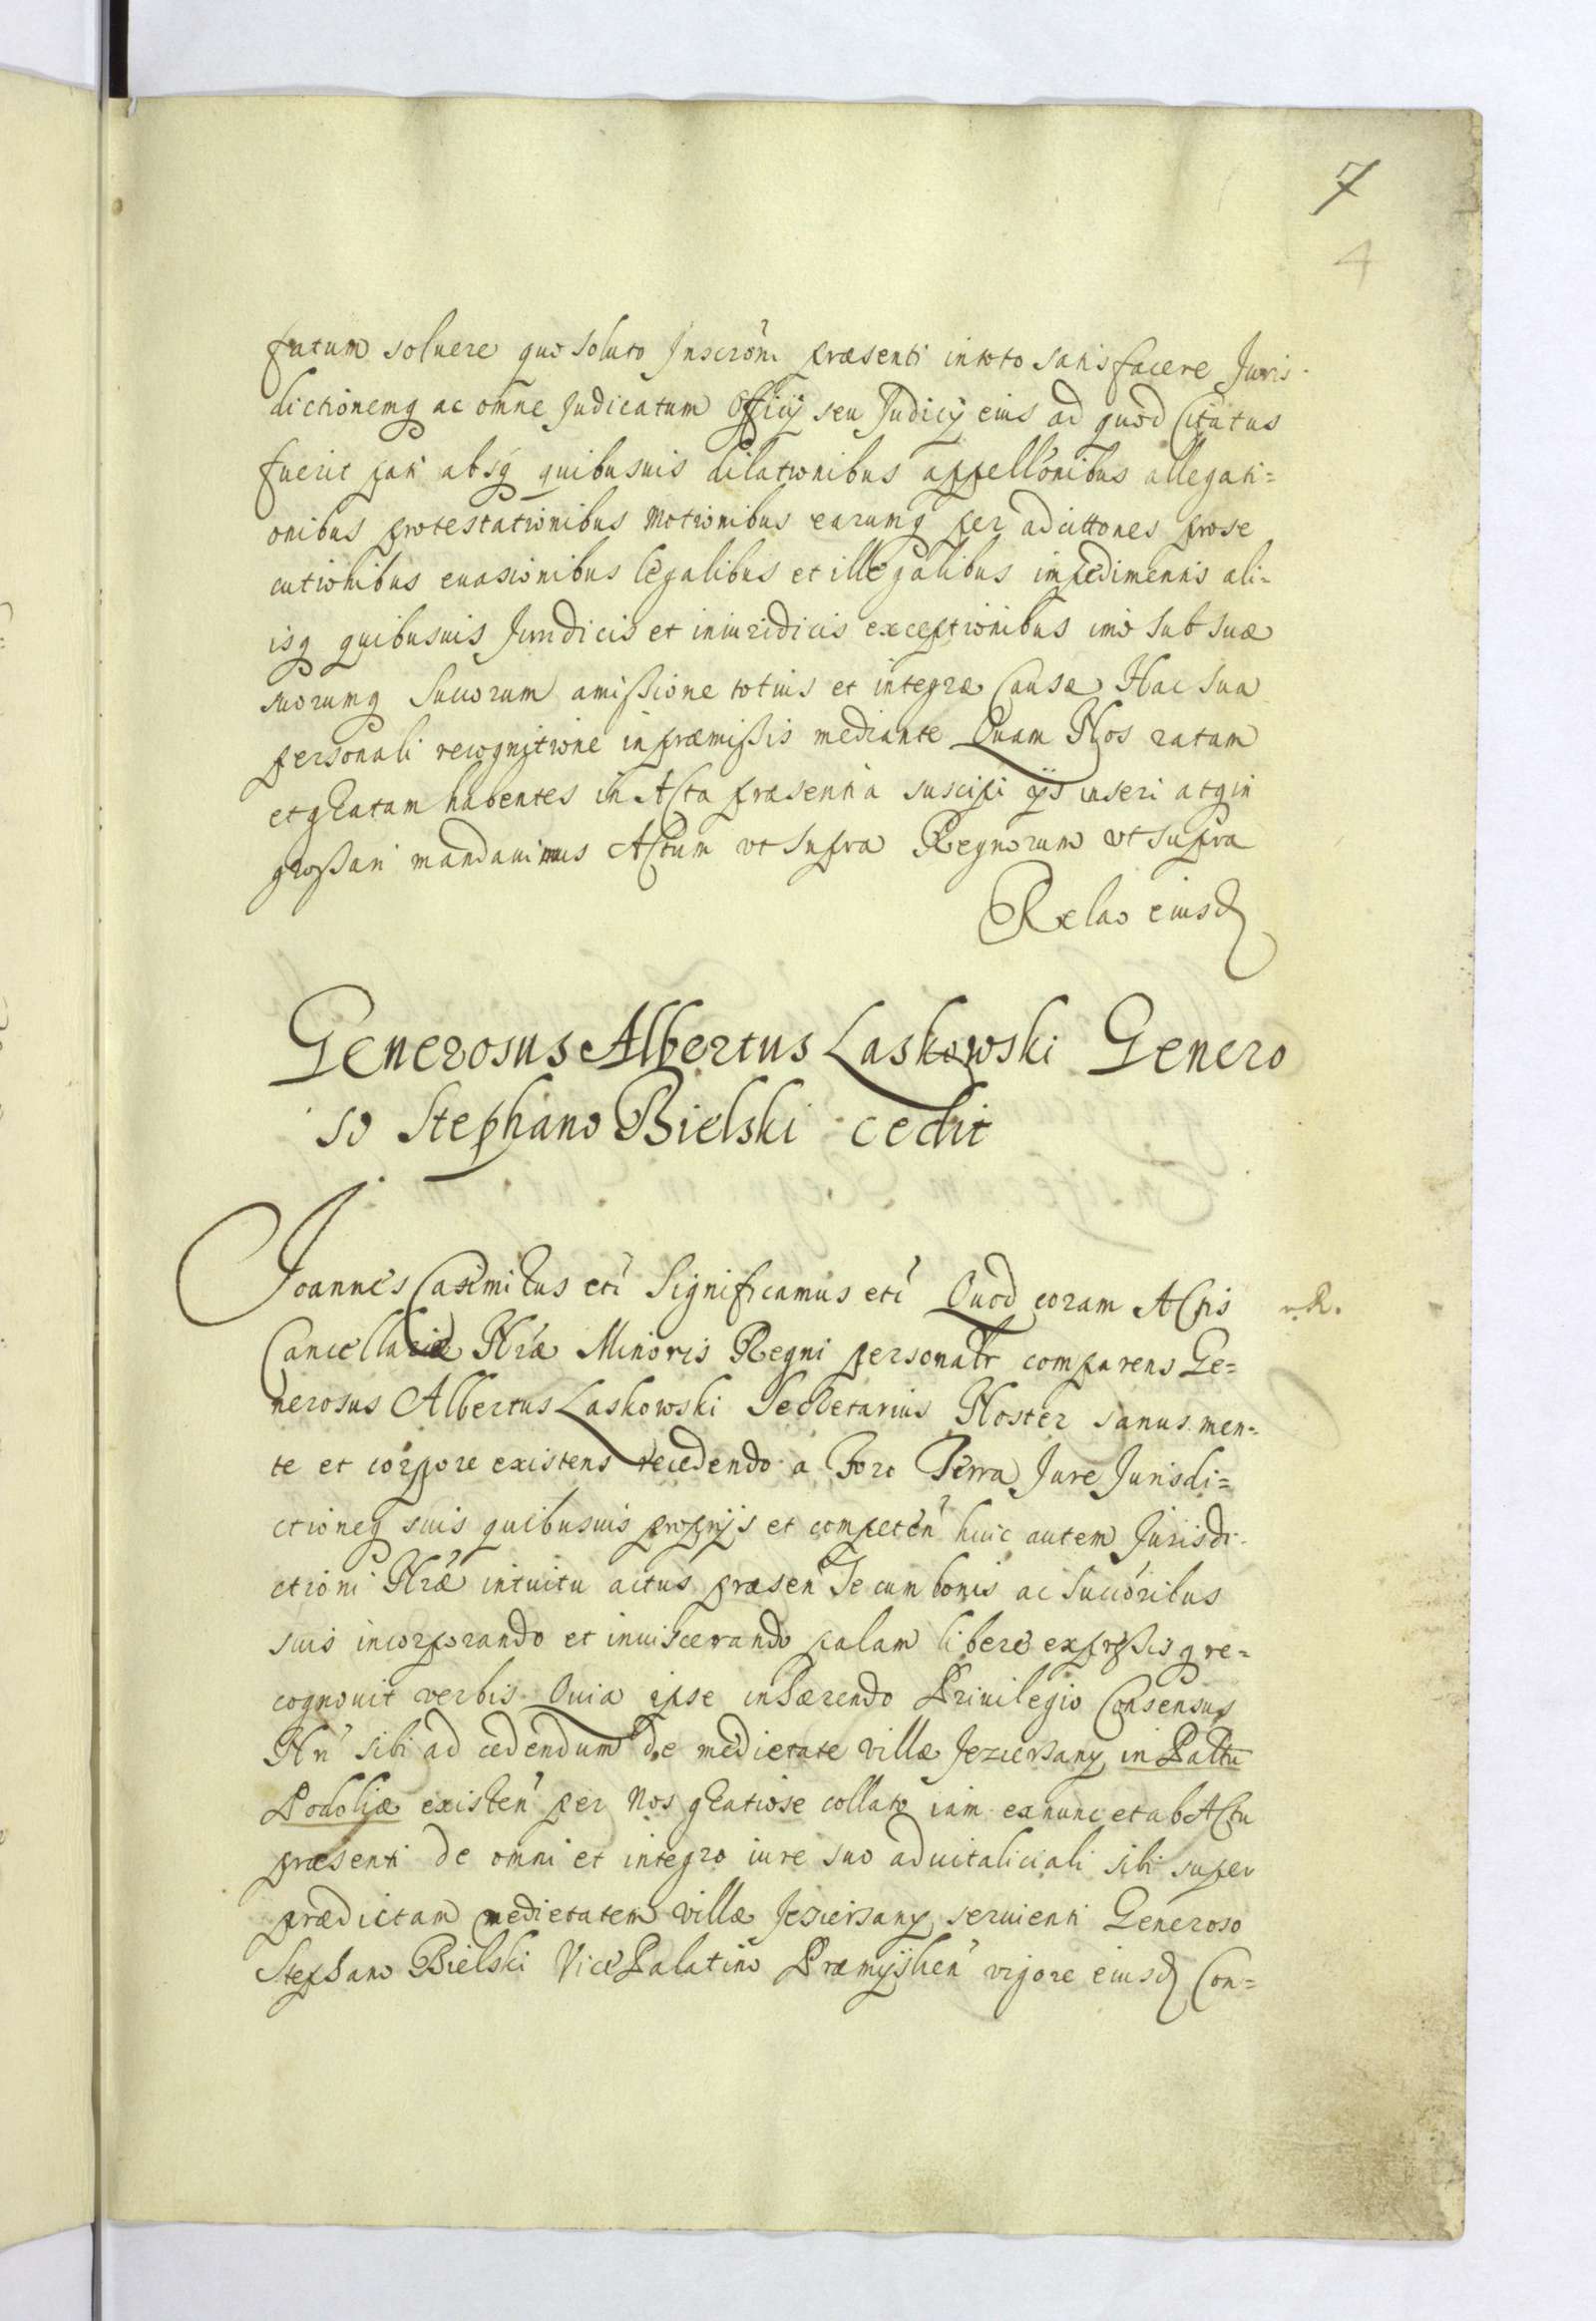 7
4
fatum soluere quo soluto Inscrõni præsenti in toto satisfacere Juris
dictionemq ac omne Judicatum Officij seu Judicij eius ad quod Citatus
fuerit pati absq quibusuis dilationibus appellõnibus allegati=
onibus protestationibus motionibus earumq per adcittones prose
cutionibus euasionibus legalibus et illegalibus impedimentis ali=
isq quibusuis Juridicis et iniuridicis exceptionibus imo sub sua
suorumq Succorum amißione totius et integræ Causæ Hac sua
personali recognitione in præmißis mediante Quam Nos ratam
et gratam habentes in Acta præsentia suscipi ijs inseri atq in
großari mandauimus Actum vt supra Regnorum vt supra
Relao eiusd
Generosus Albertus Laskowski Genero
so Stephano Bielski cedit
Joannes Casimirus etc Significamus etc Quod coram Actis
Cancellariæ Nræ Minoris Regni personalr comparens Ge=
nerosus Albertus Laskowski Secretarius Noster sanus men=
te et corpore existens recedendo a Foro Terra Jure Jurisdi=
ctioneq suis quibusuis proprijs et competen huic autem Jurisdi-
ctioni Nræ intuitu actus præsen Se cum bonis ac Succoribus
suis incorporando et inuiscerando palam libere expreßisq re=
cognouit verbis Quia ipse inhærendo Priuilegio Consensus
Nri sibi ad cedendum de medietate villæ Jezierzany in Pallũ
Podoliæ existen per Nos gratiose collato iam ex nunc et ab Actu
præsenti de omni et integro iure suo aduitaliciali sibi super
prædictam medietatem villæ Jezierzany seruienti Generoso
Stephano Bielski Vice Palatino Præmyslien vigore eiusd Con=